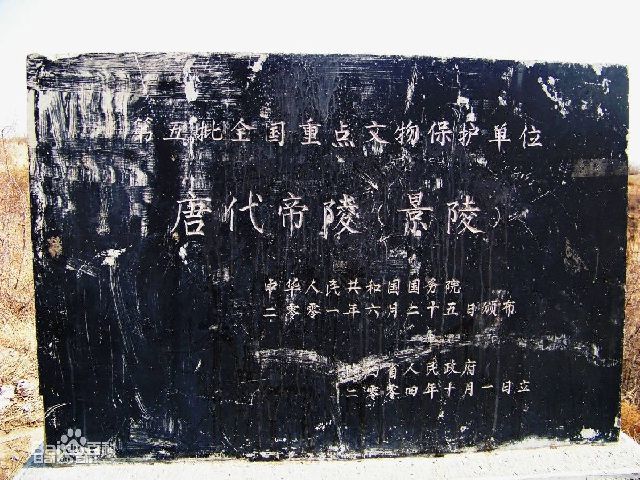 第五批全国重点文物保护单位
唐代帝陵(景陵)
中华人民共和国国务院
二零零一年六月二十五日颁布
省人民政府
二零零四年十月一日立
Bai 百科